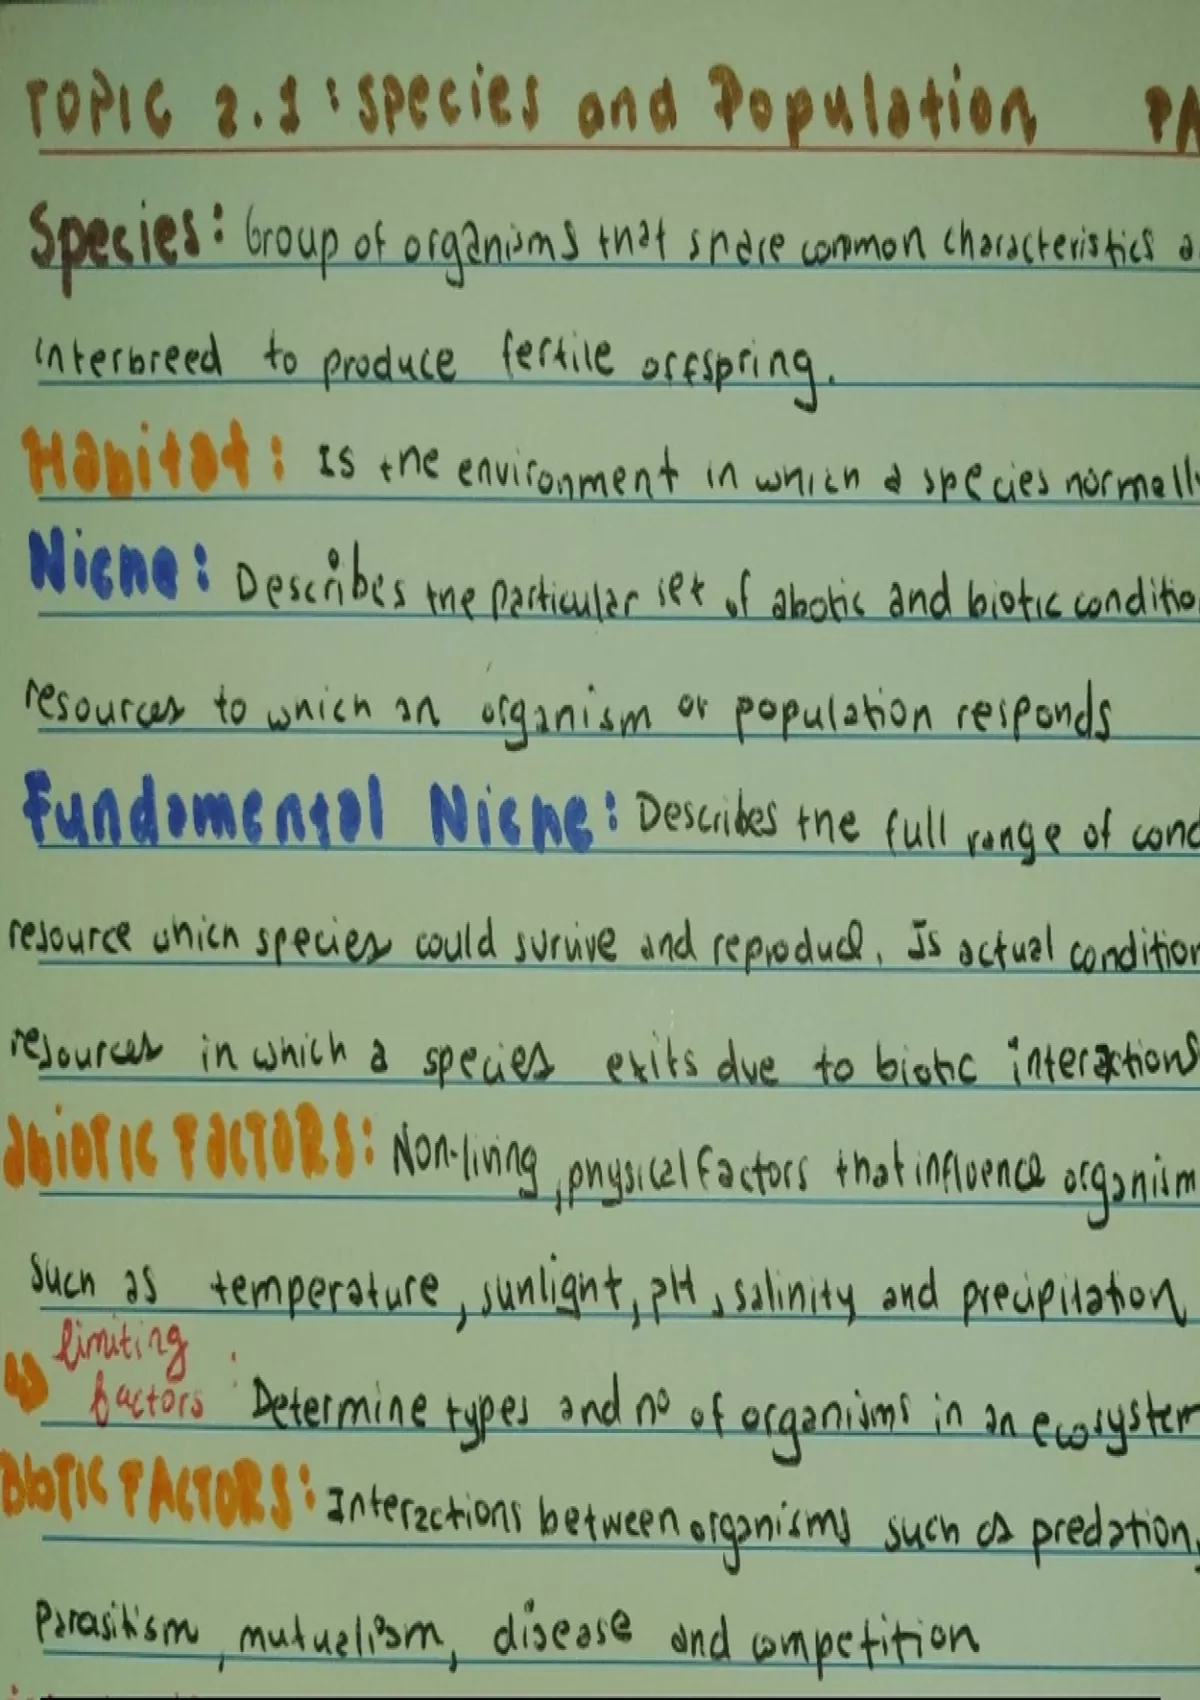 TOPIC 2.1: Species and Population PA
Species: Group of organisms that share common characteristics a
interbreed to produce fertile offspring.
Habitat: Is the environment in which a species normally
Niche: Describes the particular set of abotic and biotic conditio
resources to which an organism or population responds
Fundamental Niche: Describes the full range of cond
resource which species could survive and reproduce. Is actual condition
resources in which a species exits due to biotic interactions
ABIOTIC FACTORS: Non-living, physical factors that influence organism
such as temperature, sunlight, pH, salinity and precipitation
limiting
factors: Determine types and nº of organisms in an ecosystem
BIOTIC FACTORS: Interactions between organisms such as predation,
Parasitism, mutualism, disease and competition